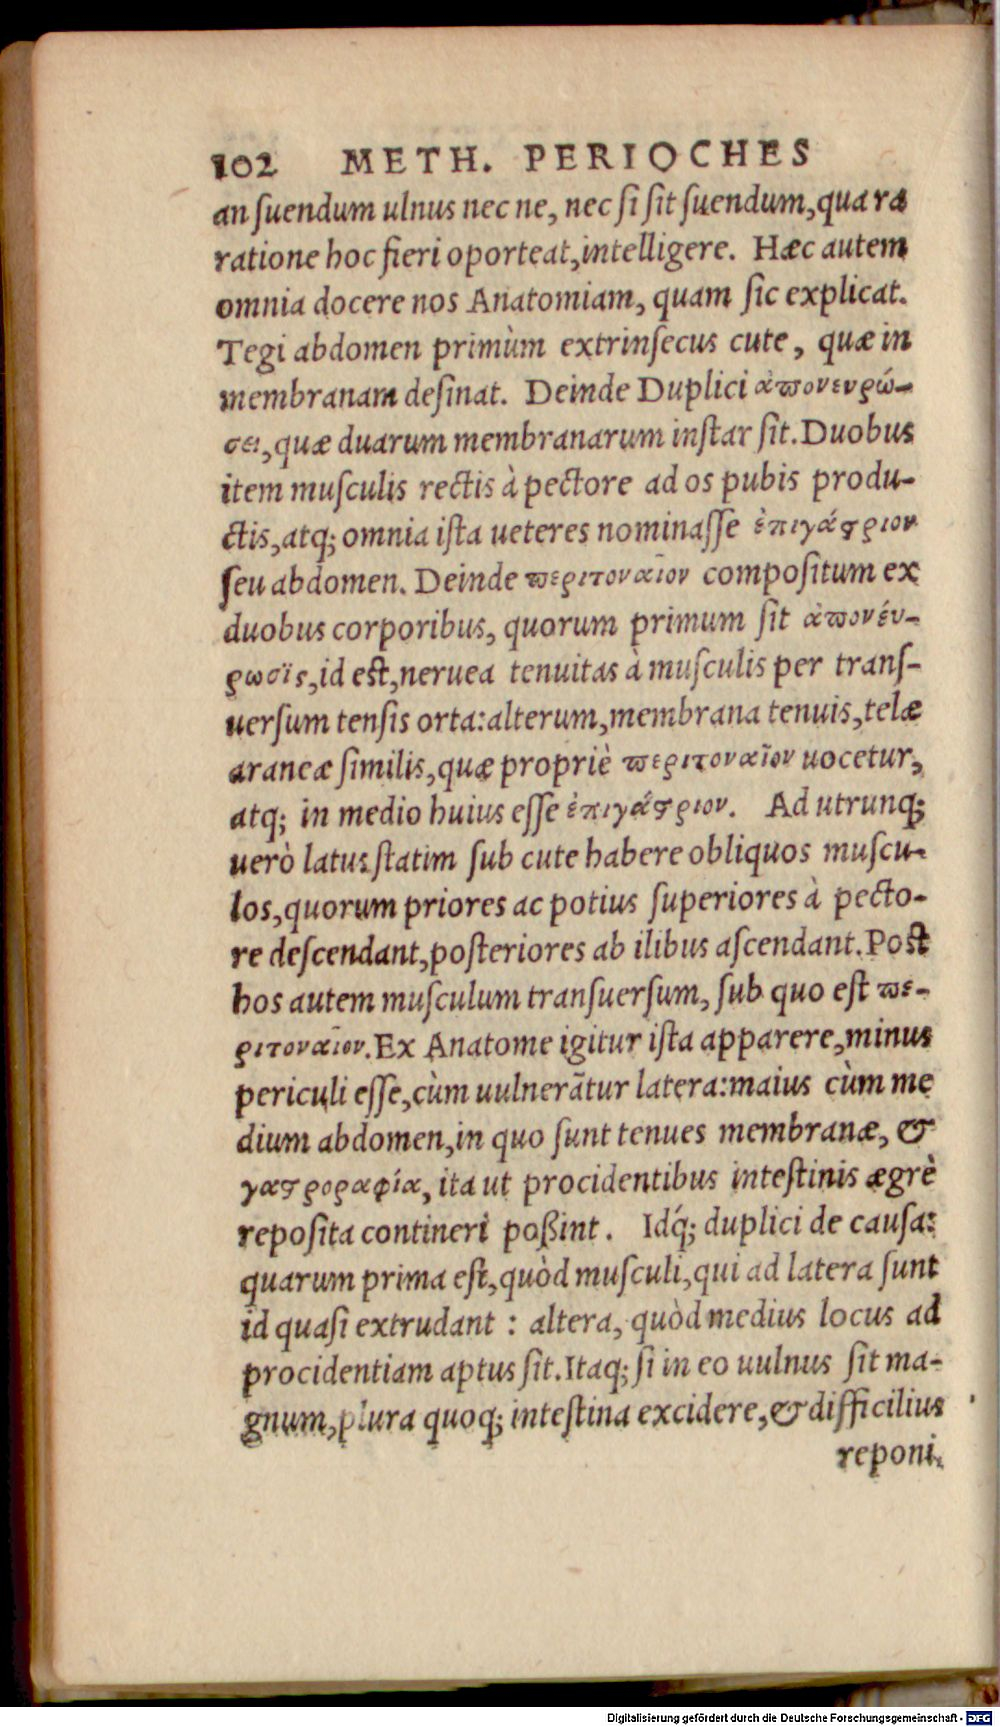 102 METH. PERIOCHES
an ſuendum ulnus nec ne, nec ſi ſit ſuendum, qua ra
ratione hoc fieri oporteat, intelligere. Hæc autem
omnia docere nos Anatomiam, quam ſic explicat.
Tegi abdomen primùm extrinſecus cute, quæ in
membranam deſinat. Deinde Duplici ἀπονευρώ-
σει, quæ duarum membranarum inſtar ſit. Duobus
item muſculis rectis à pectore ad os pubis produ-
ctis, atq; omnia iſta ueteres nominaſſe ἐπιγάςριον
ſeu abdomen. Deinde περιτοναῖον compoſitum ex
duobus corporibus, quorum primum ſit ἀπονέυ-
ρωσϊς, id eſt, neruea tenuitas à muſculis per tranſ-
uerſum tenſis orta: alterum, membrana tenuis, telæ
araneæ ſimilis, quæ propriè περιτοναῖον uocetur,
atq; in medio huius eſſe ἐπιγάςριον. Ad utrunq;
uerò latus ſtatim ſub cute habere obliquos muſcu-
los, quorum priores ac potius ſuperiores à pecto-
re deſcendant, poſteriores ab ilibus aſcendant. Poſt
hos autem muſculum tranſuerſum, ſub quo eſt πε-
ριτοναῖον. Ex Anatome igitur iſta apparere, minus
periculi eſſe, cùm uulnerātur latera: maius cùm me
dium abdomen, in quo ſunt tenues membranæ, &
γαςροραφία, ita ut procidentibus inteſtinis ægrè
repoſita contineri poßint. Idq́; duplici de cauſa:
quarum prima eſt, quòd muſculi, qui ad latera ſunt
id quaſi extrudant : altera, quòd medius locus ad
procidentiam aptus ſit. Itaq; ſi in eo uulnus ſit ma-
gnum, plura quoq; inteſtina excidere, & difficilius
reponi.
Digitalisierung gefördert durch die Deutsche Forschungsgemeinschaft - DFG